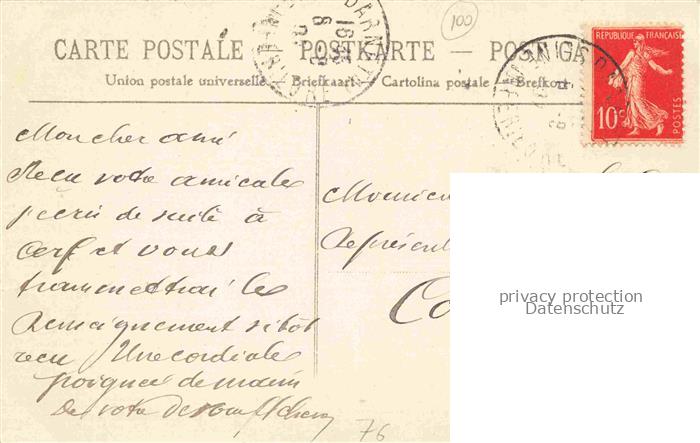 100
CARTE POSTALE — POSTKARTE — POS
Union postale universelle Briefkaart Cartolina postale Brefkort
DARNETAL
REPUBLIQUE FRANÇAISE
10c
POSTES
Mon cher ami
Recu votre amicale
j'ecris de suite à
Cerf et vous
transmettrai les
Renseignement sitot
recu Une cordiale
poignee de main
De votre
Monsieu
Représent
Co
privacy protection
Datenschutz
76